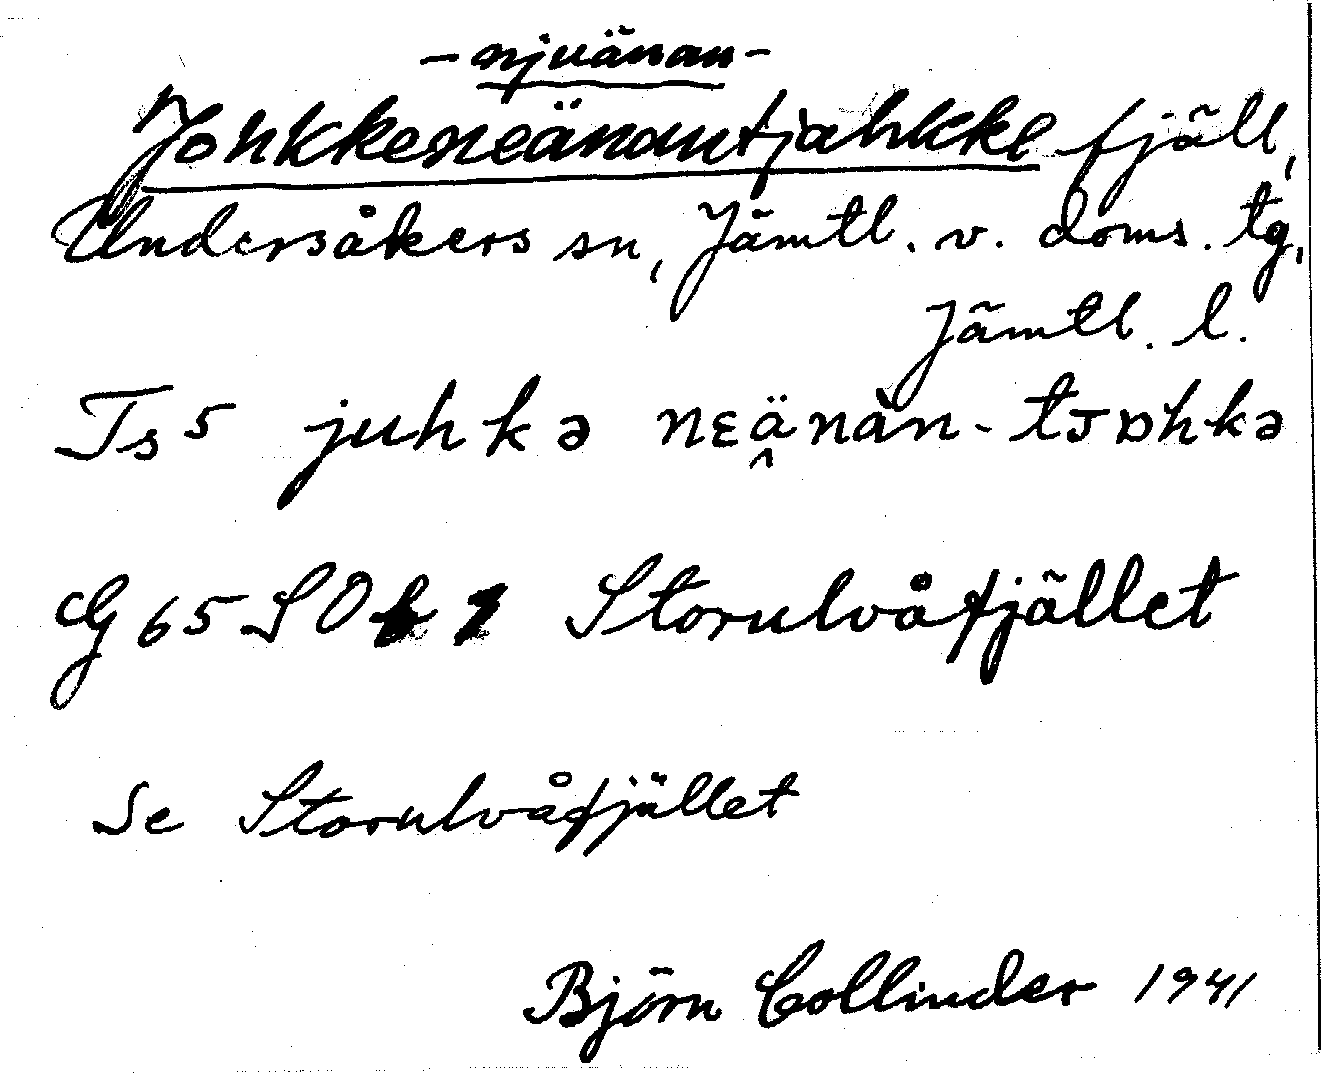 -njuänan-
Johkkeneänantjahkke fjäll,
Undersåkers sn, Jämtl. v. doms. tg,
Jämtl. l.
Ts 5 juhkə nɛä̭nàn-tᴊɒhkə
G 65 SO Storulvåfjället
Se Storulvåfjället
Björn Collinder 1941